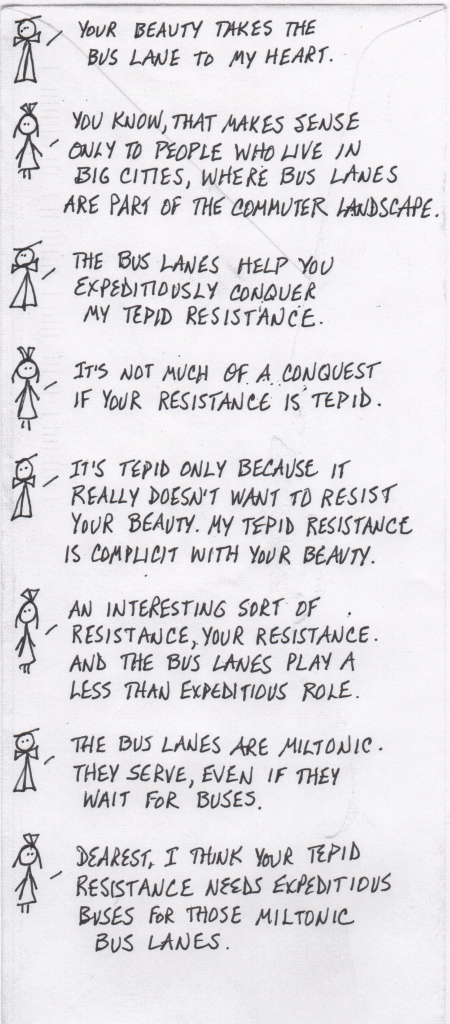 YOUR BEAUTY TAKES THE
BUS LANE TO MY HEART.
YOU KNOW, THAT MAKES SENSE
ONLY TO PEOPLE WHO LIVE IN
BIG CITIES, WHERE BUS LANES
ARE PART OF THE COMMUTER LANDSCAPE.
THE BUS LANES HELP YOU
EXPEDITIOUSLY CONQUER
MY TEPID RESISTANCE.
IT'S NOT MUCH OF A CONQUEST
IF YOUR RESISTANCE IS TEPID.
IT'S TEPID ONLY BECAUSE IT
REALLY DOESN'T WANT TO RESIST
YOUR BEAUTY. MY TEPID RESISTANCE
IS COMPLICIT WITH YOUR BEAUTY.
AN INTERESTING SORT OF
RESISTANCE, YOUR RESISTANCE.
AND THE BUS LANES PLAY A
LESS THAN EXPEDITIOUS ROLE.
THE BUS LANES ARE MILTONIC.
THEY SERVE, EVEN IF THEY
WAIT FOR BUSES.
DEAREST, I THINK YOUR TEPID
RESISTANCE NEEDS EXPEDITIOUS
BUSES FOR THOSE MILTONIC
BUS LANES.